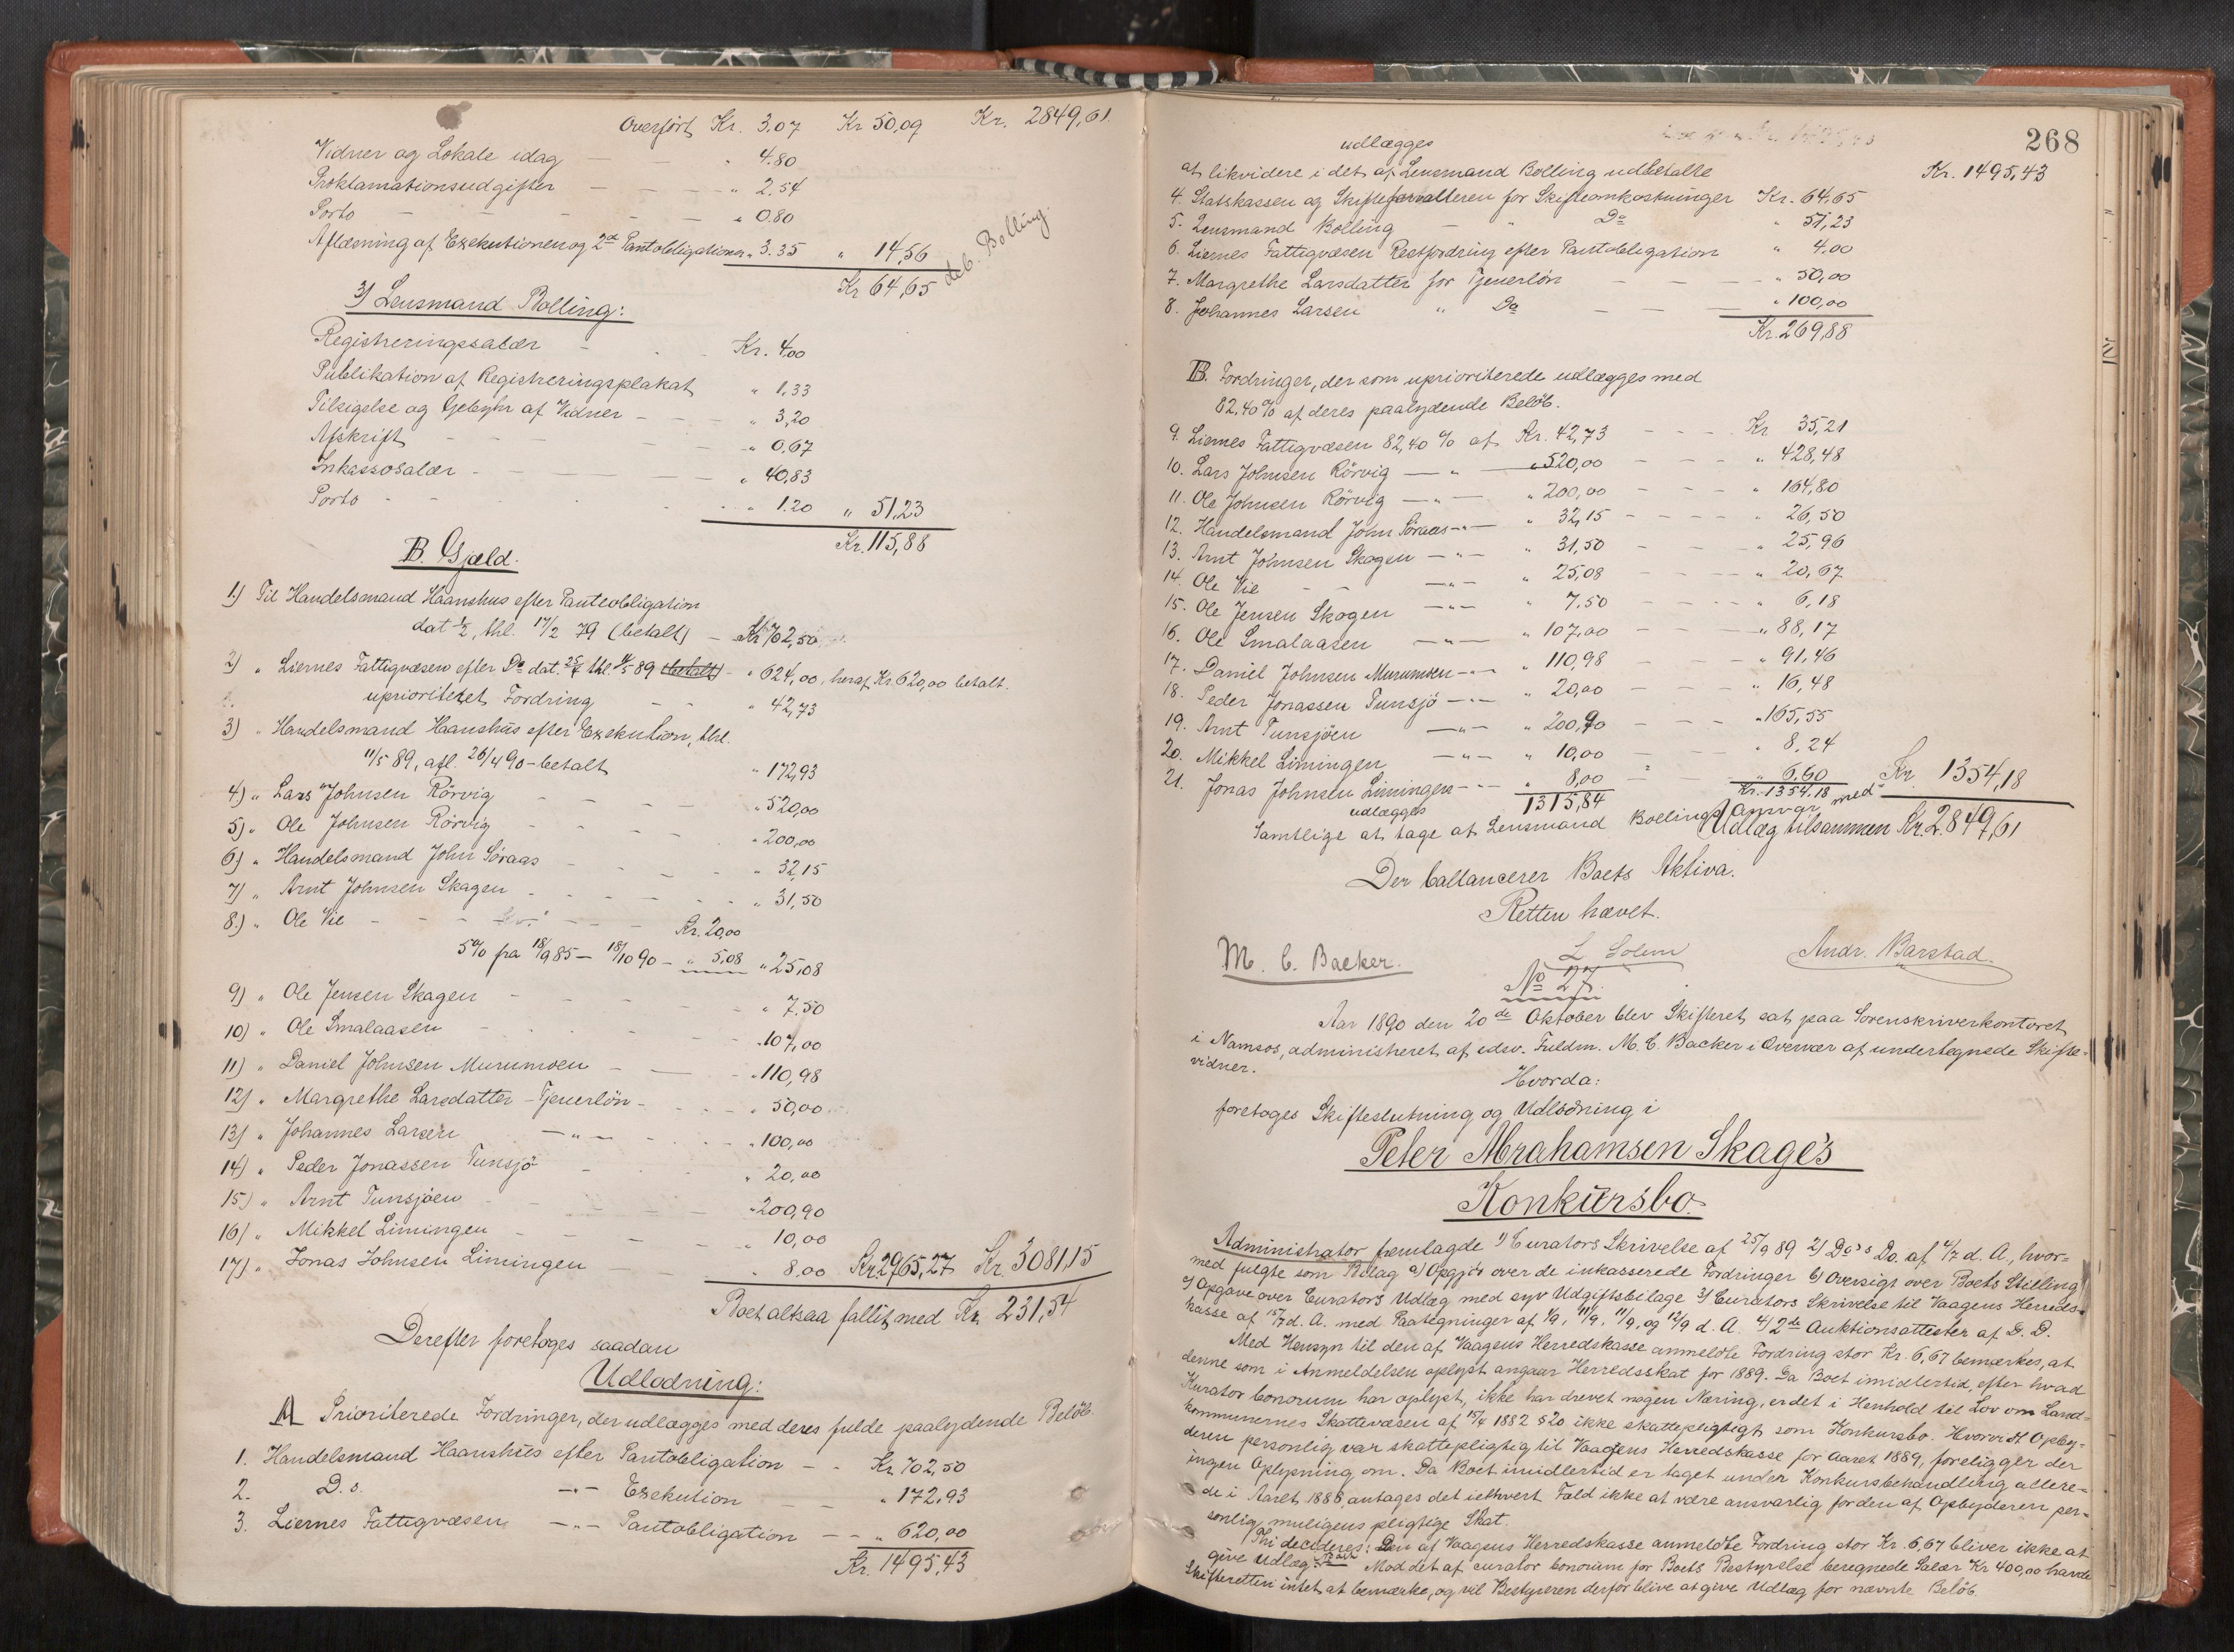 Overført Kr. 3.07 Kr 50,09 Kr. 2849,61.
Vidner og Lokale idag — — " 4.80
Proklamationsudgifter — — — " 2,54
Porto — — — — — " 0.80
Aflæsning af Exekutionen og 2de Pantobligationer " 3.35 " 14,56
Kr 64,65 deb. Bolling.
3) Lensmand Bolling:
Registreringssalær — Kr. 4,00
Publikation af Registreringsplakat " 1,33
Tilsigelse og Gebyhr af Vidner — " 3,20
Afskrift — — " 0,67
Inkassosalær — — — " 40,83
Porto - - " 1.20 " 51,23
Kr. 115,88
B. Gjæld.
1) Til Handelsmand Haanshus efter Panteobligation
dat ½, thl. 17/2 79 (betalt) — Kr 702,50
2) " Liernes Fattigvæsen efter Do dat. thl. 89 (betalt) - " 624,00, heraf Kr. 620,00 betalt.
uprioriteret Fordring — — " 42,73
3) " Handelsmand Haanshus efter Exekution, thl.
11/5 89, afl. 26/4 90 – betalt " 172,93
4) " Lars Johnsen Rörvig — — — " 520,00
5) " Ole Johnsen Rörvig - - - " 200,00
6) " Handelsmand John Söraas - - - " 32,15
7) " Arnt Johnsen Skagen - - - " 31,50
8.) " Ole Vie - - - Kr. 20,00
5% fra 18/9 85 — 18/10 90 — " 5,08 " 25,08
9) " Ole Jensen Skagen - - " 7.50
10) " Ole Smalaasen - - - " 107,00
11) " Daniel Johnsen Murumoen — — " 110,98
12) " Margrethe Larsdatter – Tjenerlön - - " 50,00
13) " Johannes Larsen — " — - " 100,00
14) " Peder Jonassen Tunsjö - - " 20,00
15) " Arnt Tunsjöen - - " 200,90
16) " Mikkel Limingen — — " 10,00
17) " Jonas Johnsen Limingen — " 8,00 Kr. 2965,27 Kr. 3081,15
Boet altsaa fallit med Kr. 231,54
Derefter foretoges saadan
Udlodning:
A Prioriterede Fordringer, der udlægges med deres fulde paalydende Belöb.
1. Handelsmand Haanshus efter Pantobligation — - Kr. 702,50
2. D.o. —"— Exekution — — " 172,93
3. Liernes Fattigvæsen —"— Pantobligation — — " 620,00
Kr. 1495,43
268
udlægges
at likvidere i det af Lensmand Bolling udbetalte Kr. 1495,43
4. Statskassen og Skifteforvalteren for Skifteomkostninger Kr. 64,65
5. Lensmand Bolling — " Do " 51,23
6. Liernes Fattigvæsen Restfordring efter Pantobligation " 4,00
7. Margrethe Larsdatter for Tjenerlön — — — " 50,00
8. Johannes Larsen " Do — — — " 100,00
Kr. 269,88
B. Fordringer, der som uprioriterede udlægges med
82,40% af deres paalydende Belöb.
9. Liernes Fattigvæsen 82,40 % af Kr. 42,73 - - - Kr 35,21
10. Lars Johnsen Rörvig — " — " 520,00 - - - " 428,48
11. Ole Johnsen Rörvig — " — " 200,00 - - - " 164,80
12. Handelsmand John Söraas - " — " 32,15 - - - " 26,50
13. Arnt Johnsen Skagen — " — " 31,50 - - " 25,96
14. Ole Vie - - — " — " 25,08 - - - " 20,67
15. Ole Jensen Skogen — " — " 7.50 - - - " 6,18
16. Ole Smalaasen — " — " 107,00 - - - " 88,17
17. Daniel Johnsen Murumoen - " - " 110,98 - - " 91,46
18. Peder Jonassen Tunsjö — " — " 20,00 - - - " 16,48
19. Arnt Tunsjöen — " — " 200,90 - - - " 165,55
20. Mikkel Limingen — " — " 10,00 - - " 8,24
21. Jonas Johnsen Limingen - " — " 8,00 - - " 6.60 Kr. 1354,18
1315,84 Kr. 1354.18
udlægges
Samtlige at tage af Lensmand Bollings Ansvar med
Udlæg tilsammen Kr. 2849,61
Der ballancerer Boets Aktiva.
Retten hævet.
M. C. Backer. L Solem Andr. Barstad.
No 27.
Aar 1890 den 20de Oktober blev Skifteret sat paa Sorenskriverkontoret
i Namsos, administreret af edsv. Fuldm. M. C. Backer i Overvær af undertegnede Skifte-
vidner.
Hvorda:
foretoges Skifteslutning og Udlodning i
Peter Abrahamsen Skage's
Konkursbo.
Administrator fremlagde 1) Curators Skrivelse af 25/9 89 2) Do's Do. af 4/7 d. A., hvor-
med fulgte som Bilag a) Opgjör over de inkasserede Fordringer b) Oversigt over Boets Stilling
c) Opgave over Curators Udlæg med syv Udgiftsbilage 3) Curators Skrivelse til Vaagens Herreds-
kasse af 15/7 d. A. med Paategninger af 1/9, 11/9, 11/9, og 12/9 d. A. 4) 2de Auktionsattester af D. D.
Med Hensyn til den af Vaagens Herredskasse anmeldte Fordring stor Kr. 6,67 bemærkes, at
denne som i Anmeldelsen oplyst angaar Herredsskat for 1889. Da Boet imidlertid, efter hvad
Kurator bonorum har oplyst, ikke har drevet nogen Næring, er det i Henhold til Lov om Land-
kommunernes Skattevæsen af 15/4 1882 § 20 ikke skattepligtigt som Konkursbo. Hvorvidt Opby-
deren personlig var skattepligtig til Vaagens Herredskasse for Aaret 1889, foreligger der
ingen Oplysning om. Da Boet imidlertid er taget under Konkursbehandling allere-
de i Aaret 1888, antages det iethvert Fald ikke at være ansvarlig for den af Opbyderen per-
sonlig muligens pligtige Skat.
Thi decideres: Den af Vaagens Herredskasse anmeldte Fordring stor Kr. 6,67 bliver ikke at
give Udlæg. Mod det af curator bonorum for Boets Bestyrelse beregnede Salær Kr 400,00 havde
Skifteretten intet at bemærke, og vil Bestyreren derfor blive at give Udlæg for nævnte Belöb.